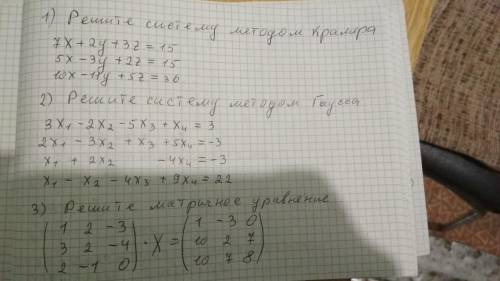 1) Решите систему методом Крамера
7x + 2y + 3z = 15
5x - 3y + 2z = 15
10x - 11y + 5z = 36
2) Решите систему методом Гаусса
3x₁ - 2x₂ - 5x₃ + x₄ = 3
2x₁ - 3x₂ + x₃ + 5x₄ = -3
x₁ + 2x₂ - 4x₄ = -3
x₁ - x₂ - 4x₃ + 9x₄ = 22
3) Решите матричное уравнение
( 1 2 -3 ) ( 1 -3 0 )
( 3 2 -4 ) · X = ( 10 2 7 )
( 2 -1 0 ) ( 10 7 8 )